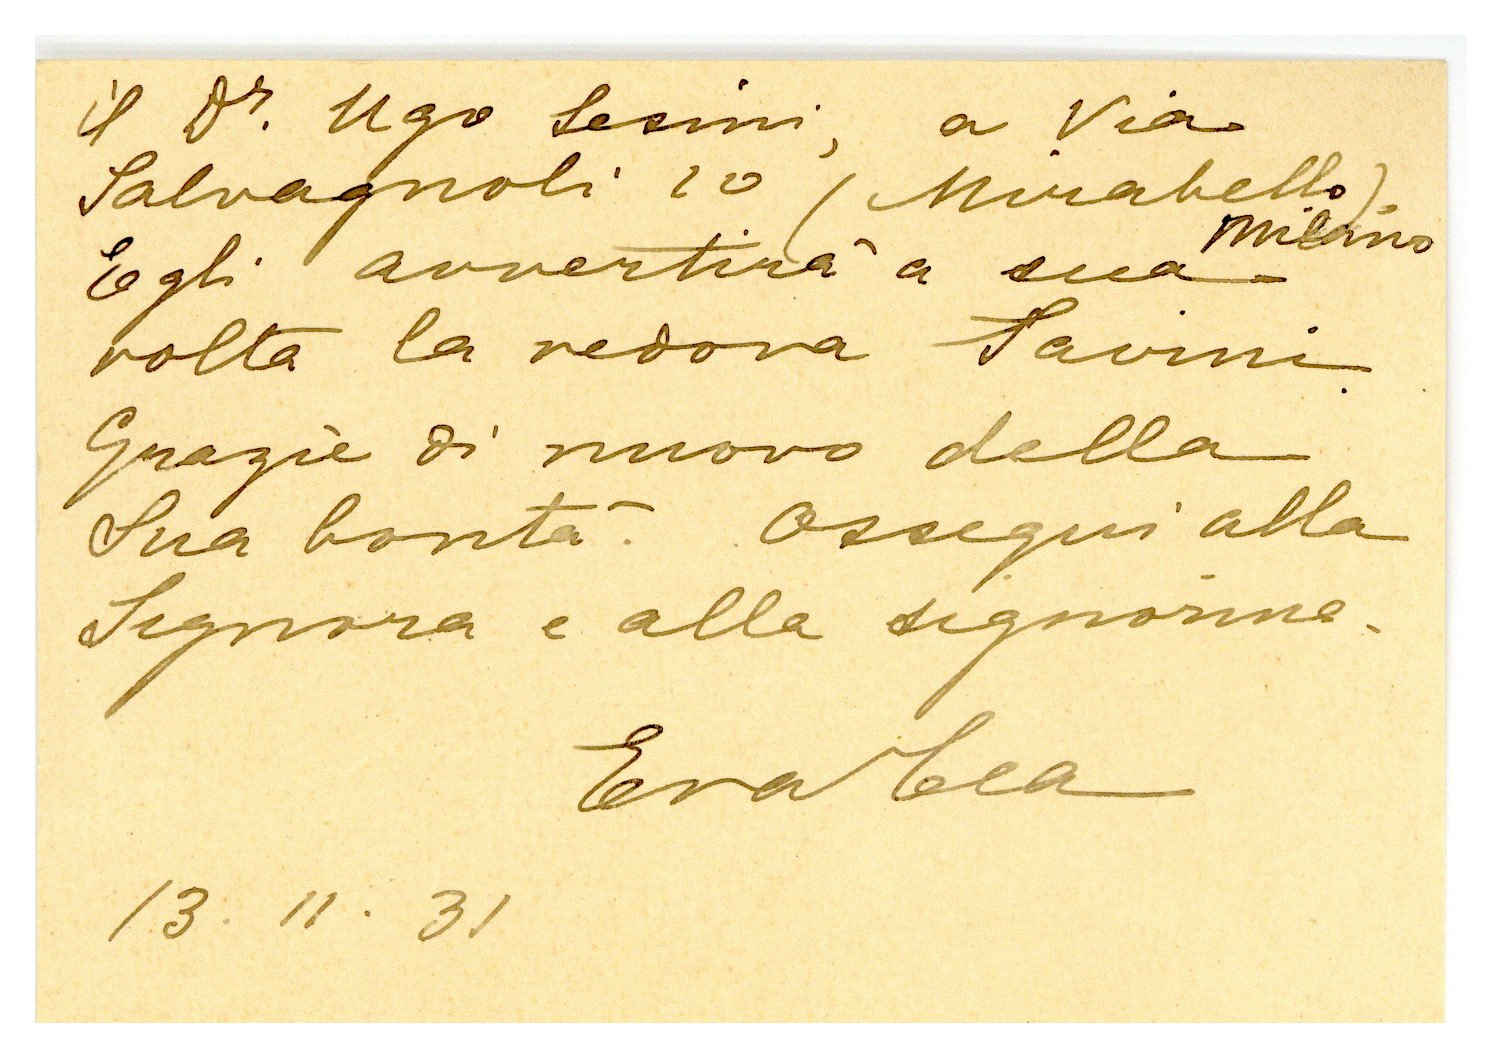 il Dr. Ugo Sesini, a Via
Salvagnoli 10 (Mirabello).
Milano
Egli avvertirà a sua
volta la vedova Savini.
Grazie di nuovo della
Sua bontà. Ossequi alla
Signora e alla signorina.
Eva Tea
13. 11. 31